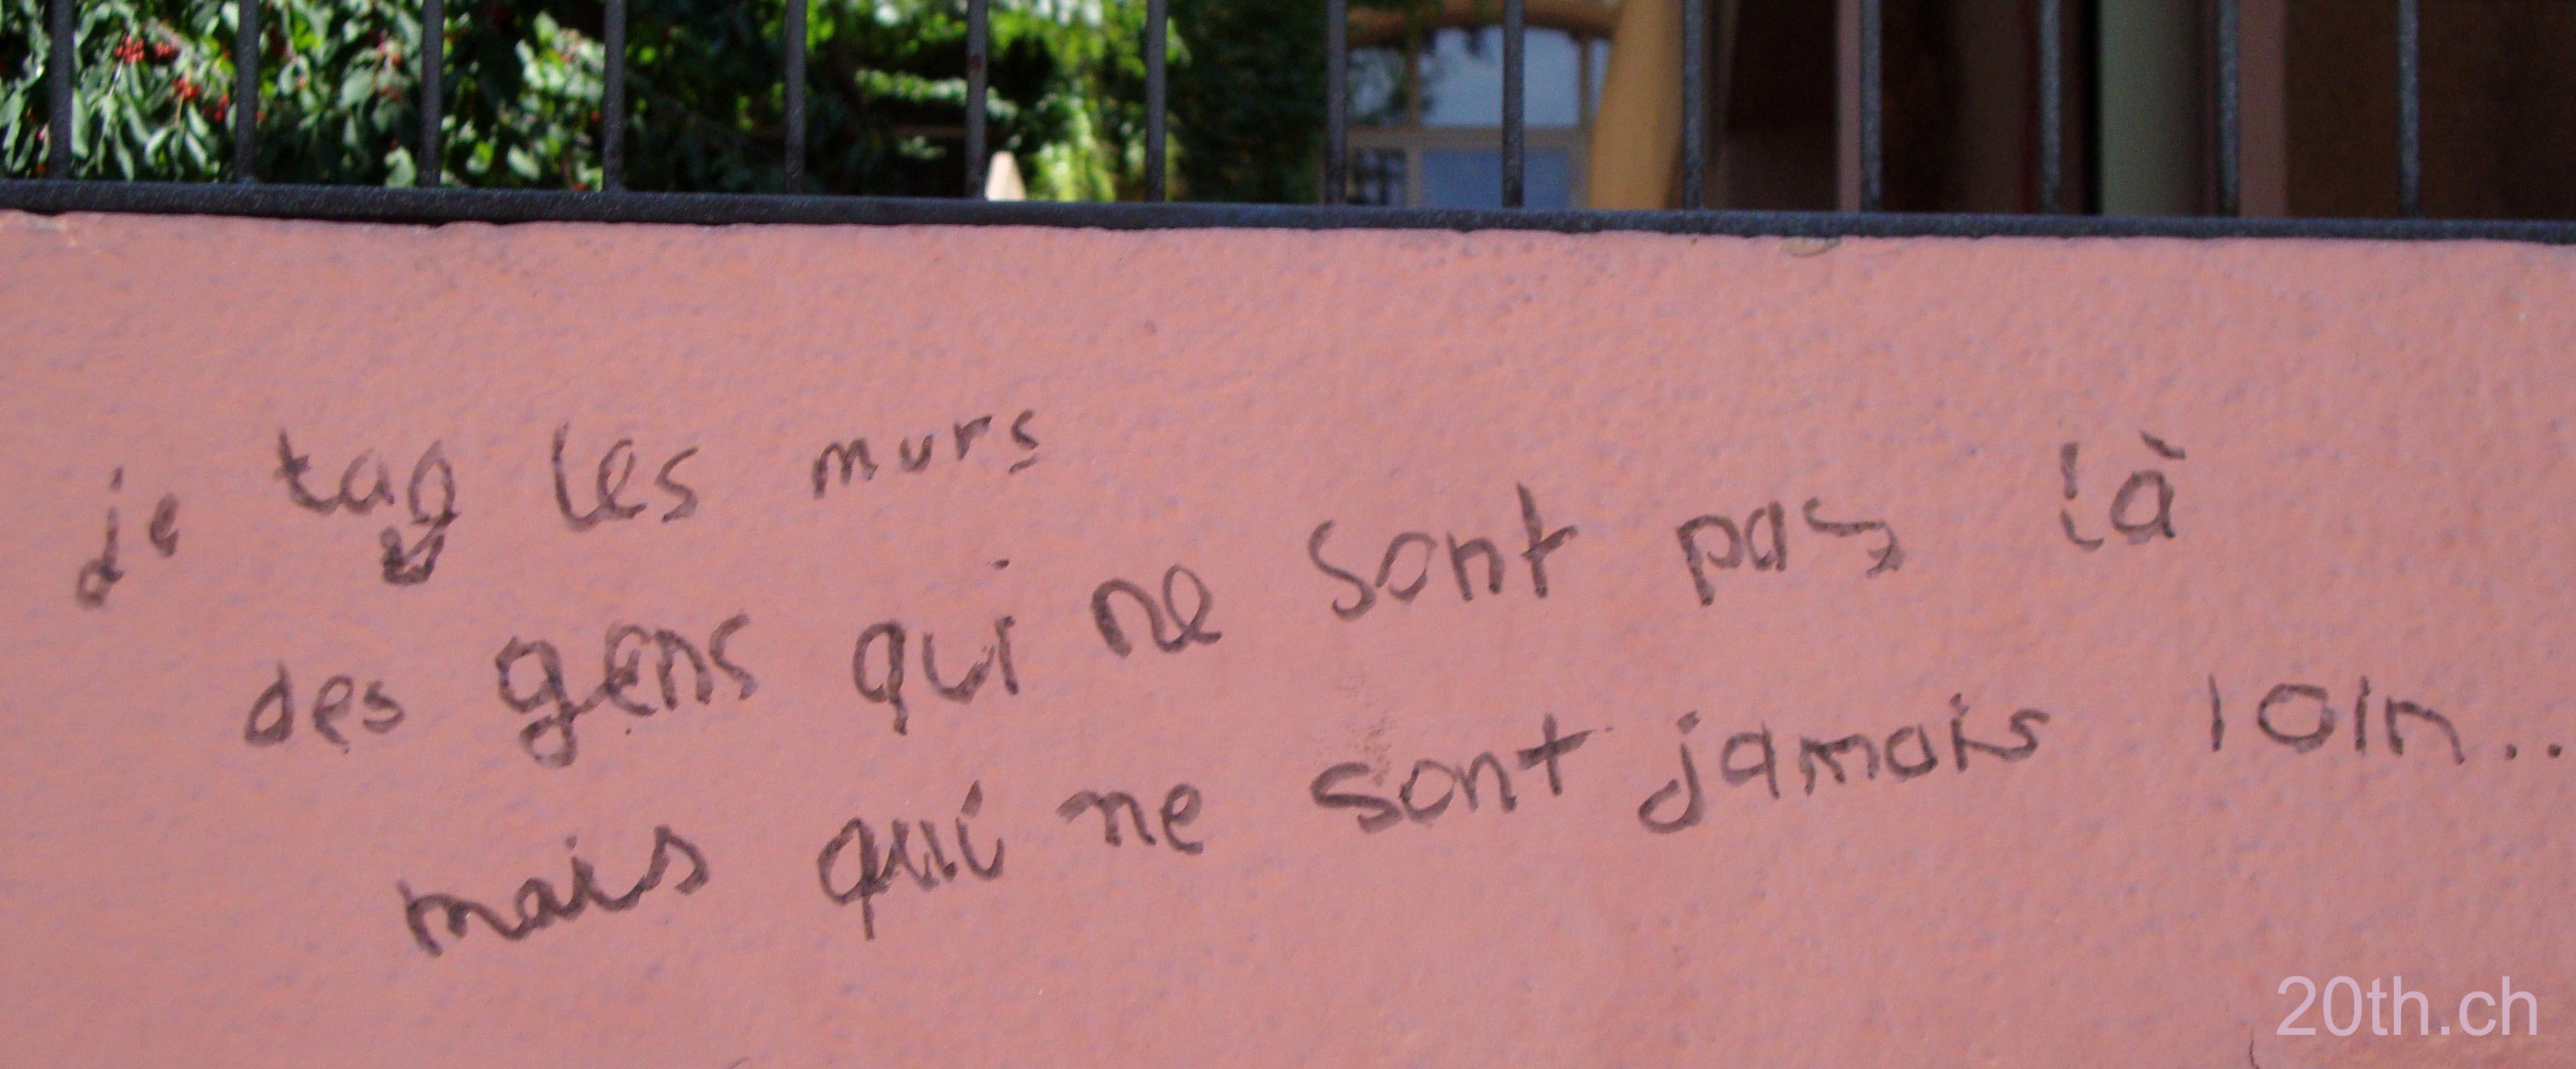 je tag les murs
des gens qui ne sont pas là
mais qui ne sont jamais loin..
20th.ch